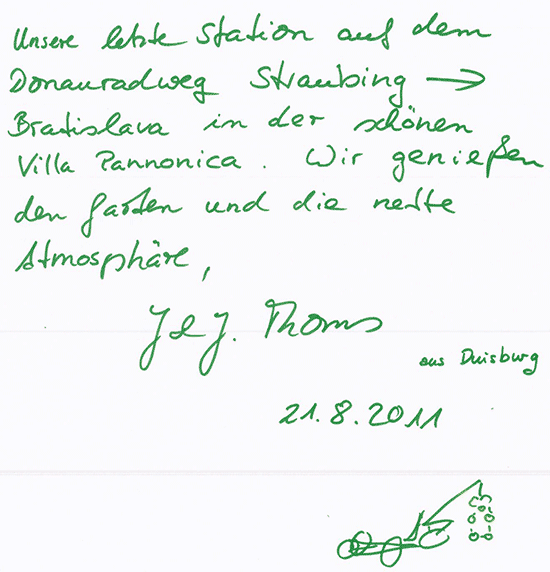 Unsere letzte Station auf dem
Donauradweg Straubing →
Bratislava in der schönen
Villa Pannonica. Wir genießen
den Garten und die nette
Atmosphäre,
J & J. Thoms
aus Duisburg
21.8.2011